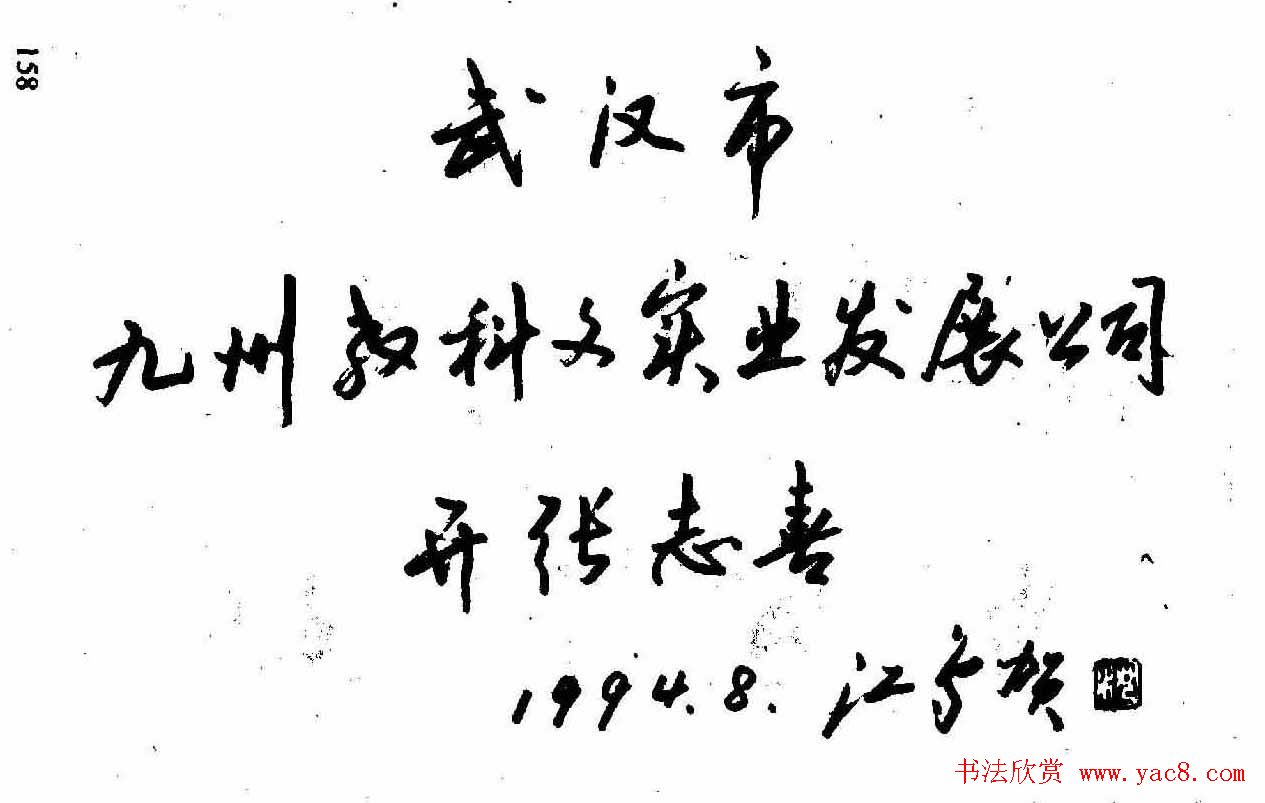 158
武汉市
九州教科文实业发展公司
开张志喜
1994.8. 江 贺
书法欣赏 www.yac8.com